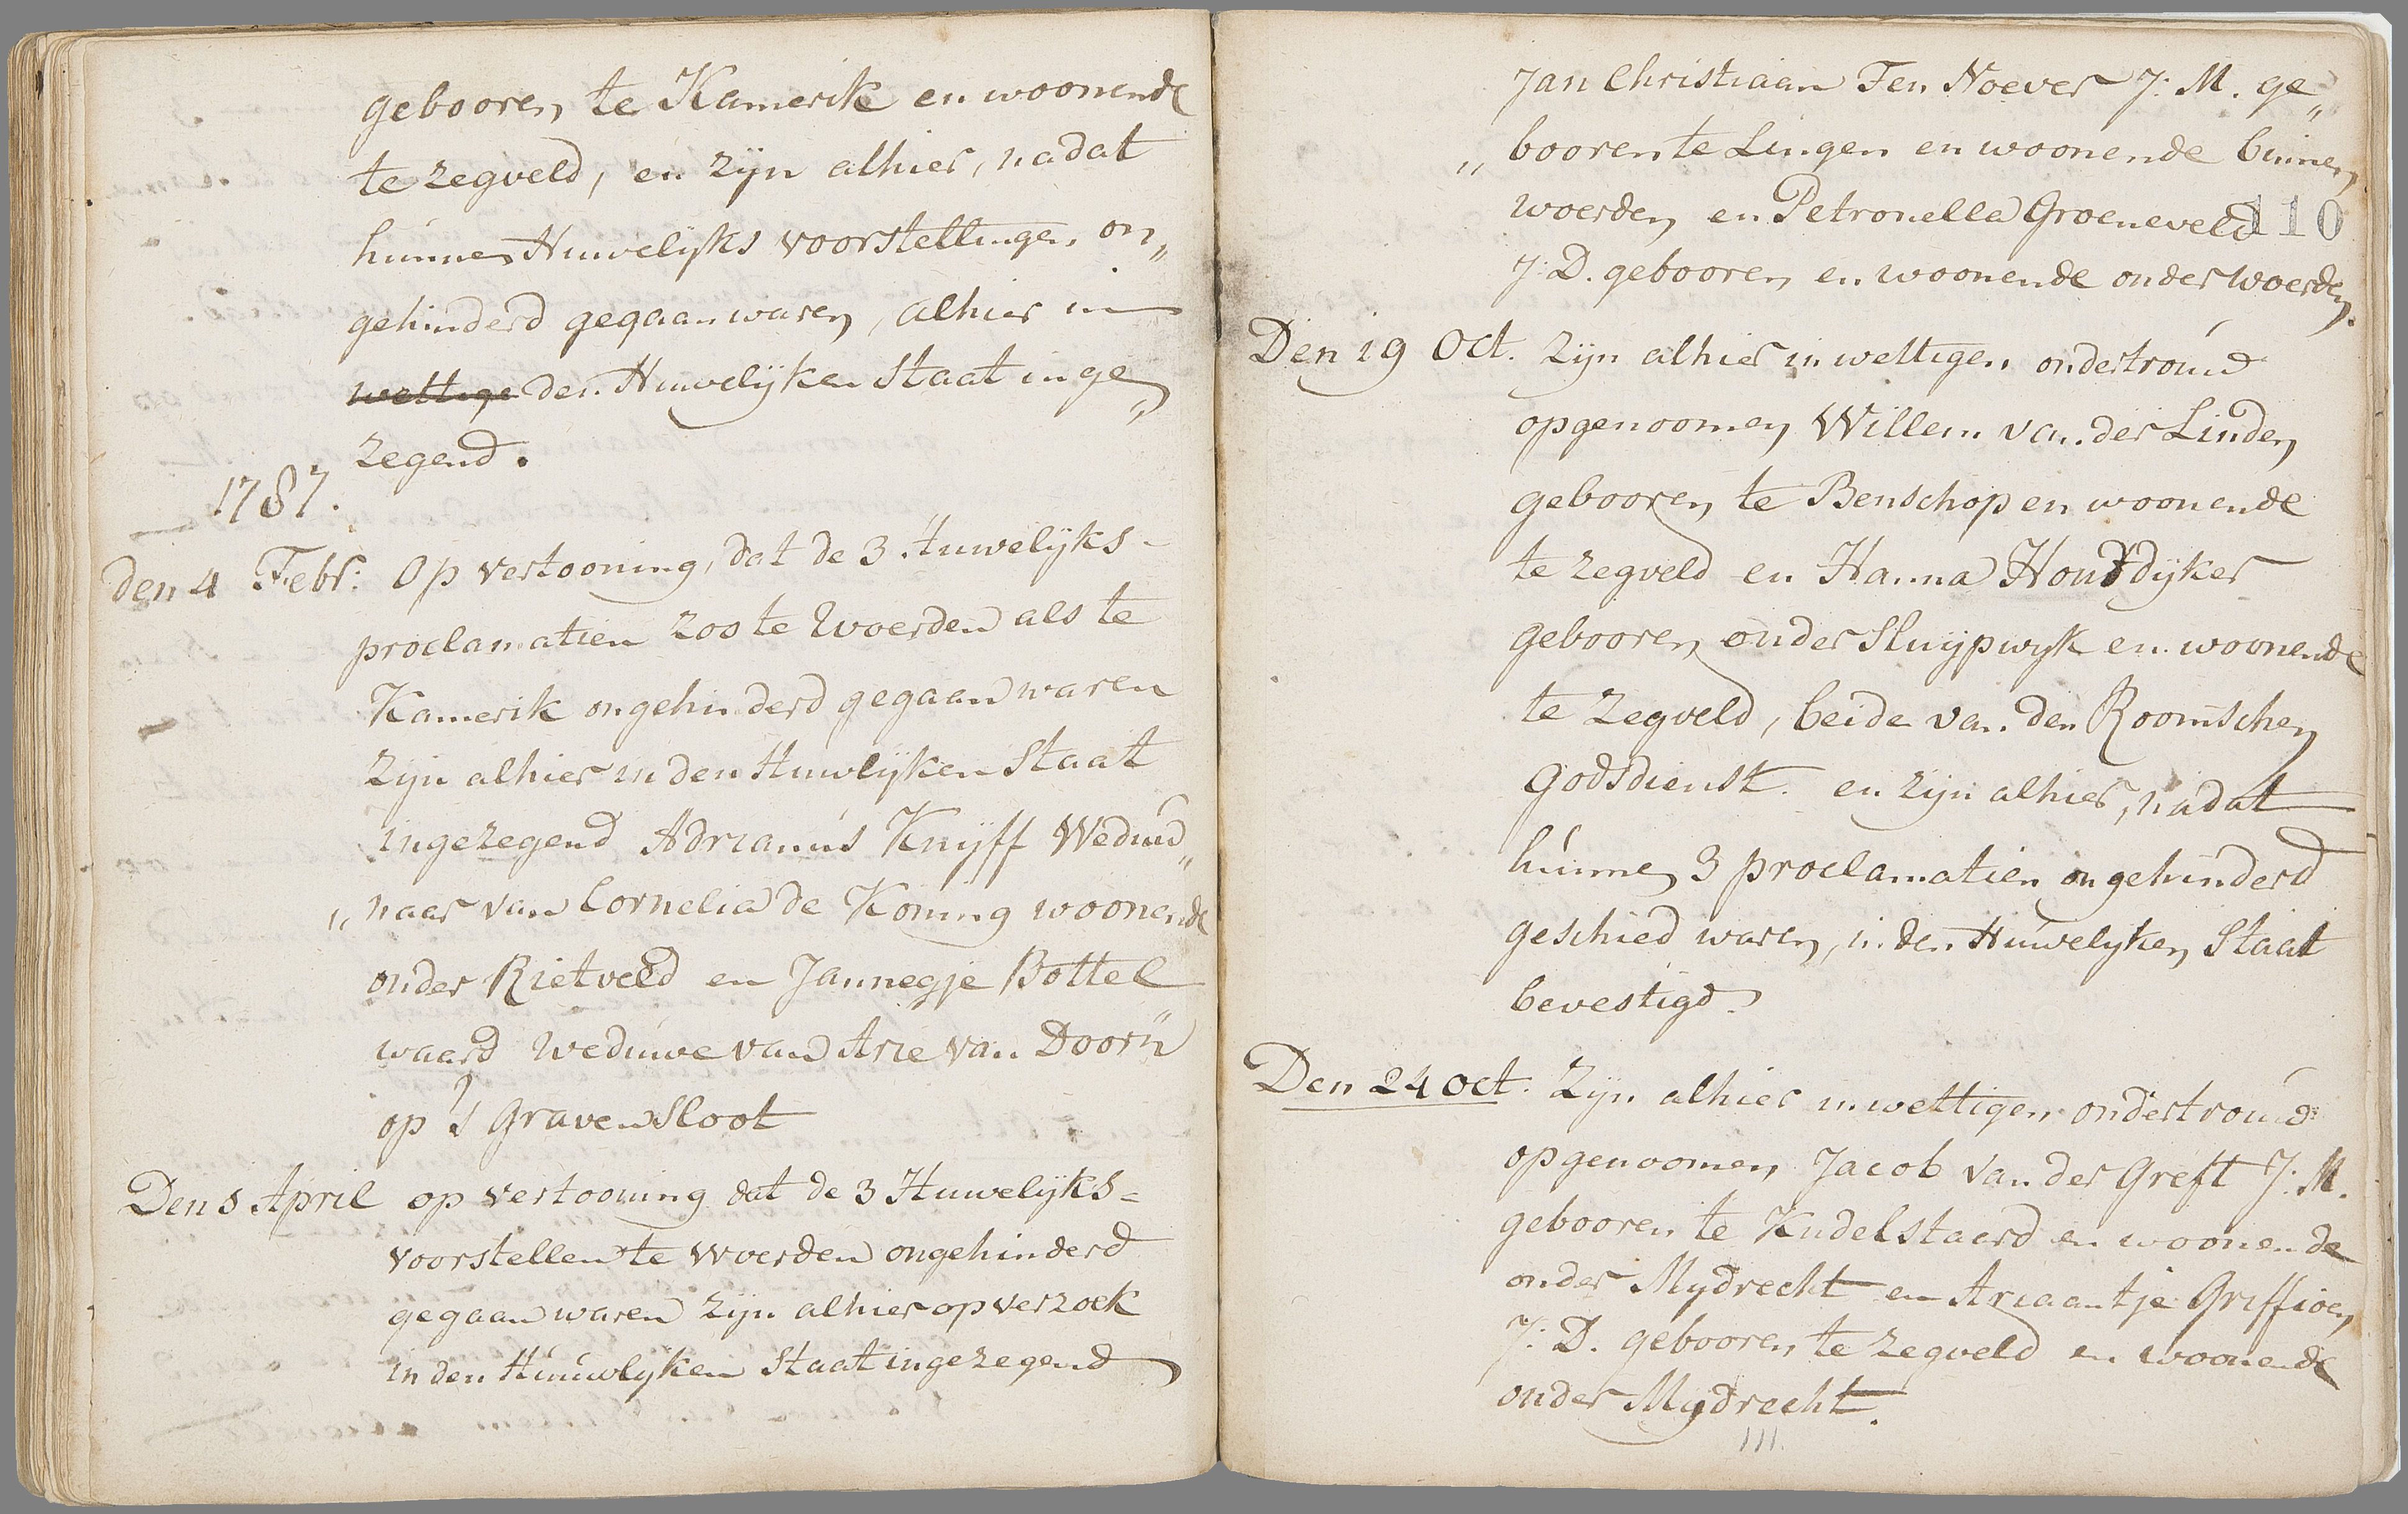 gebooren te Kamerik en woonende
te Zegveld, en zijn alhier, nadat
hunne Huwelijks voorstellingen on„
gehinderd gegaan waren, alhier in
wettige den Huwelijken Staat inge„
zegend.
1787.
den 4 Febr: Op vertooning, dat de 3 Huwelijks-
proclamatien zoo te Woerden als te
Kamerik ongehinderd gegaan waren
zijn alhier in den Huwlijken Staat
ingezegend Adrianus Knijff Weduw„
„naar van Cornelia de Koning woonende
onder Rietveld en Jannegje Bottel
waard Weduwe van Arie van Doorn
op 's Gravensloot
Den 8 April op vertooning dat de 3 Huwelijks=
voorstellen te Woerden ongehinderd
gegaan waren zijn alhier op verzoek
in den Huuwlyken Staat ingezegend
Jan Christiaan Ten Noever J: M. ge„
„booren te Lingen en woonende binnen
Woerden en Petronella Groeneveld
110
J: D. gebooren en woonende onder Woerden.
Den 19 Oct. Zijn alhier in wettigen ondertrouw
opgenoomen Willem van der Linden
gebooren te Benschop en woonende
te Zegveld en Hanna Houtdijker
gebooren onder Sluijpwyk en woonende
te Zegveld, beide van den Roomschen
Godsdienst. en zijn alhier, nadat
hunne 3 proclamatien ongehinderd
geschied waren, in den Huwelyken Staat
bevestigd.
Den 24 Oct. Zijn alhier in wettigen ondertrouw
opgenoomen Jacob van der Greft J: M.
gebooren te Kudelstaerd en woonende
onder Mydrecht en Ariaantje Griffioen
J: D. gebooren te Zegveld en woonende
onder Mydrecht.
111.